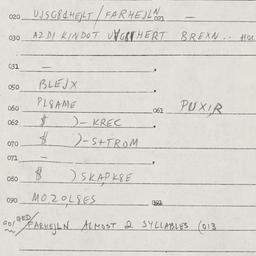 020 VJSC84HEJLT / FARHEJLN 021 —
030 AZDI KINDOT VYCNHERT BREXN..
031 —
050 BLEJX
060 PL8AME 061 PUXIR
062 $ )-KREC
070 $ )-S+TROM
071 —
080 $ ) SKAPK8E
090 MOZOL8ES 092
FARHEJLN ALMOST 2 SYLLABLES (013